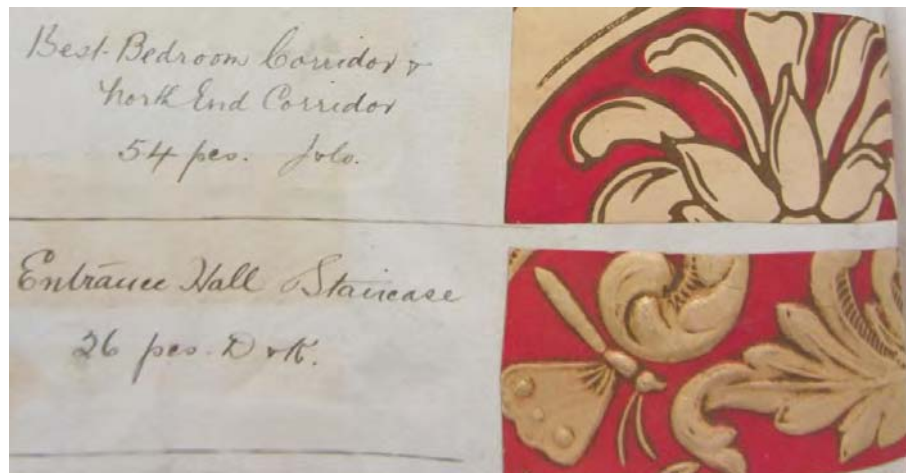 Best Bedroom Corridor &
North End Corridor
54 pcs.
Entrance Hall Staircase
26 pcs. D & K.